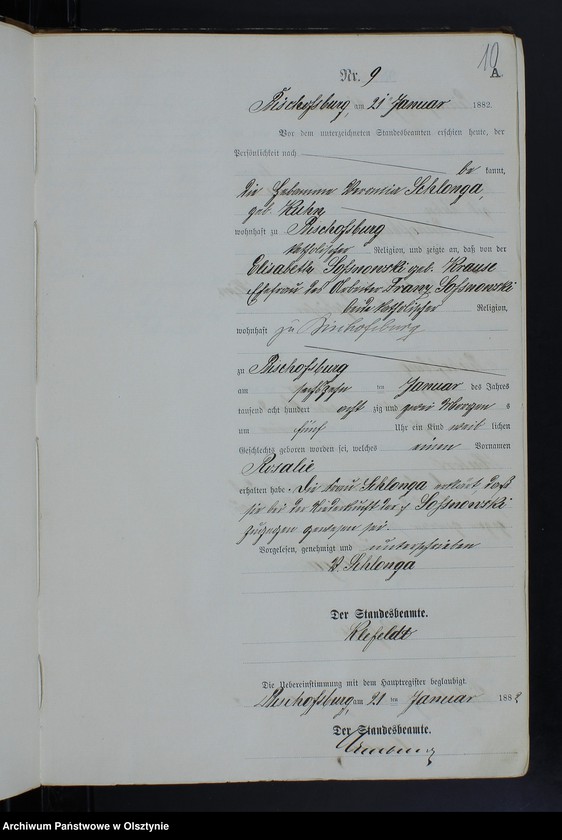 10
A.
Nr. 9
Bischofsburg, am 21 Januar 1882.
Vor dem unterzeichneten Standesbeamten erschien heute, der
Persönlichkeit nach
be kannt,
die Hebamme Veronia Schlonga,
geb. Kuhn
wohnhaft zu Bischofsburg
katholischer Religion, und zeigte an, daß von der
Elisabeth Soßnowski geb. Krause
Ehefrau des Arbeiter Franz Soßnowski
beide katholischer Religion,
wohnhaft zu Bischofsburg
zu Bischofsburg
am sechszehn ten Januar des Jahres
tausend acht hundert acht zig und zwei Morgens
um fünf Uhr ein Kind weib lichen
Geschlechts geboren worden sei, welches einen Vornamen
Rosalie
erhalten habe. Die Frau Schlonga erklärt, daß
sie bei der Niederkunft der Soßnowski
zugegen gewesen sei.
Vorgelesen, genehmigt und unterschrieben
V. Schlonga
Der Standesbeamte.
Klefeldt
Die Uebereinstimmung mit dem Hauptregister beglaubigt
Bischofsburg, am 21 ten Januar 1882
Der Standesbeamte.
Archiwum Państwowe w Olsztynie